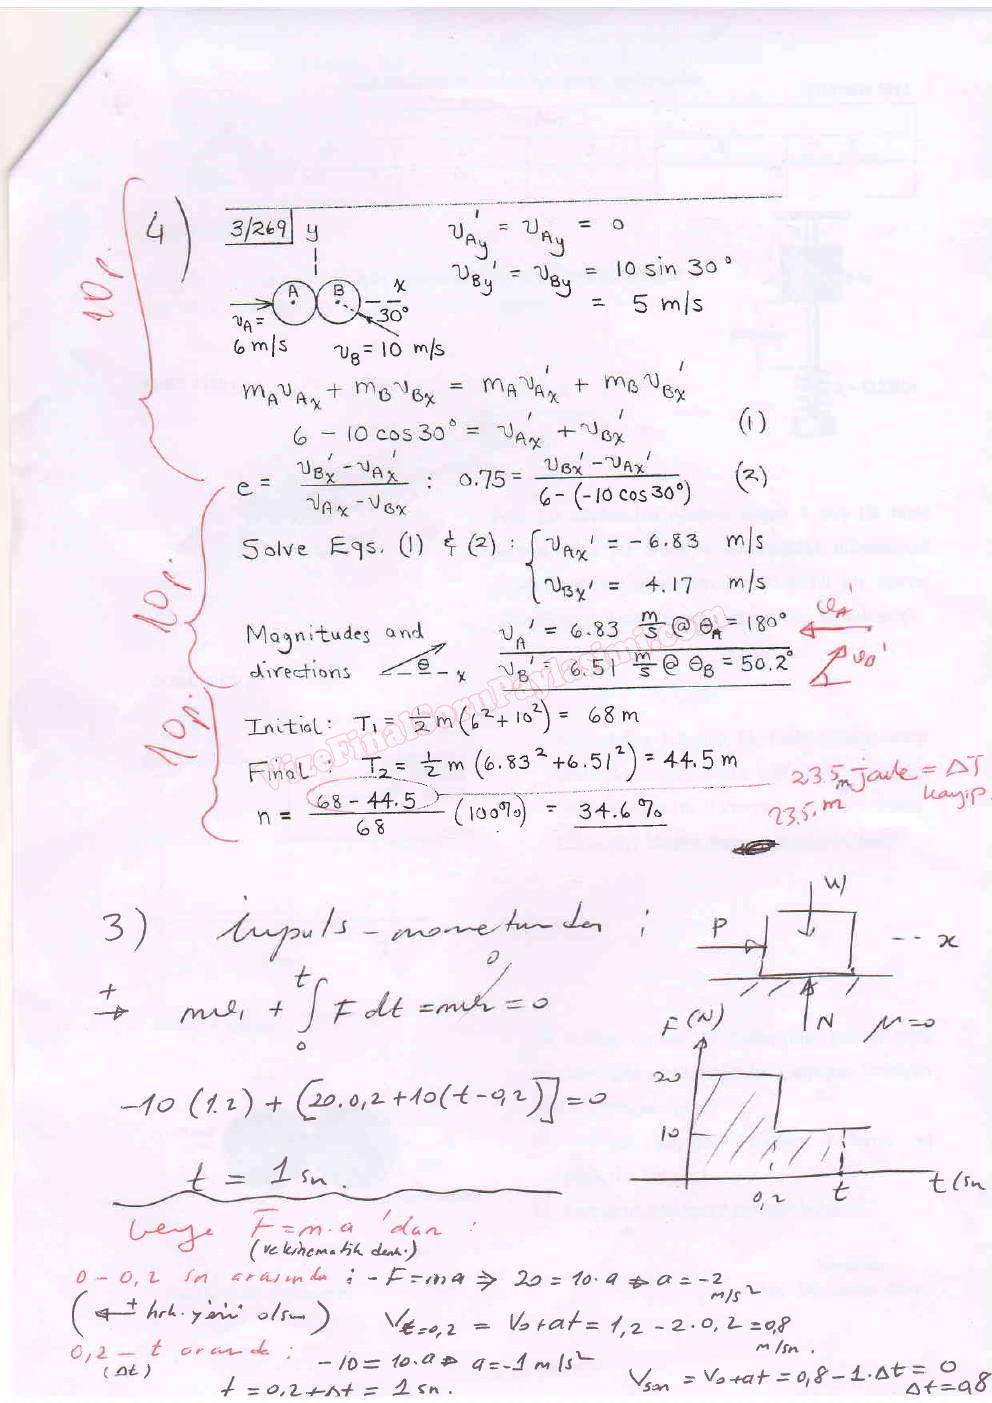 4)
3/269 y
A B x
30°
v_A =
6 m/s v_B = 10 m/s
v_Ay' = v_Ay = 0
v_By' = v_By = 10 sin 30°
= 5 m/s
m_A v_Ax + m_B v_Bx = m_A v_Ax' + m_B v_Bx'
6 - 10 cos 30° = v_Ax' + v_Bx' (1)
e = (v_Bx' - v_Ax') / (v_Ax - v_Bx) : 0.75 = (v_Bx' - v_Ax') / (6 - (-10 cos 30°)) (2)
Solve Eqs. (1) & (2) : { v_Ax' = -6.83 m/s
v_Bx' = 4.17 m/s
Magnitudes and
directions θ x
v_A' = 6.83 m/s @ θ_A = 180° v_A'
v_B' = 6.51 m/s @ θ_B = 50.2° v_B'
Initial: T_1 = 1/2 m (6² + 10²) = 68 m
Final : T_2 = 1/2 m (6.83² + 6.51²) = 44.5 m
n = (68 - 44.5) / 68 (100%) = 34.6 %
23.5 m Joule = ΔT
kayıp.
23.5.m
10 p.
10 p.
10 p.
VizeFinalSoruPaylasimi.com
3) İmpuls - momentumdan :
W
P -- x
N μ=0
+
→ mv_1 + ∫_0^t F dt = mv_2 = 0
0
-10 (1.2) + [20.0,2 + 10(t-0,2)] = 0
t = 1 sn.
F (N)
20
10
0,2 t t (sn
Veya F = m.a 'dan :
(ve kinematik denk.)
0 - 0,2 sn arasında : - F = ma ⇒ 20 = 10.a ⇒ a = -2
m/s²
(← + hrk. yönü olsun) V_t=0,2 = V_0 + at = 1,2 - 2.0,2 = 0,8
m/sn.
0,2 - t arasında :
(Δt)
-10 = 10.a ⇒ a = -1 m/s²
V_son = V_0 + at = 0,8 - 1.Δt = 0
Δt = 0,8
t = 0,2 + Δt = 1 sn.